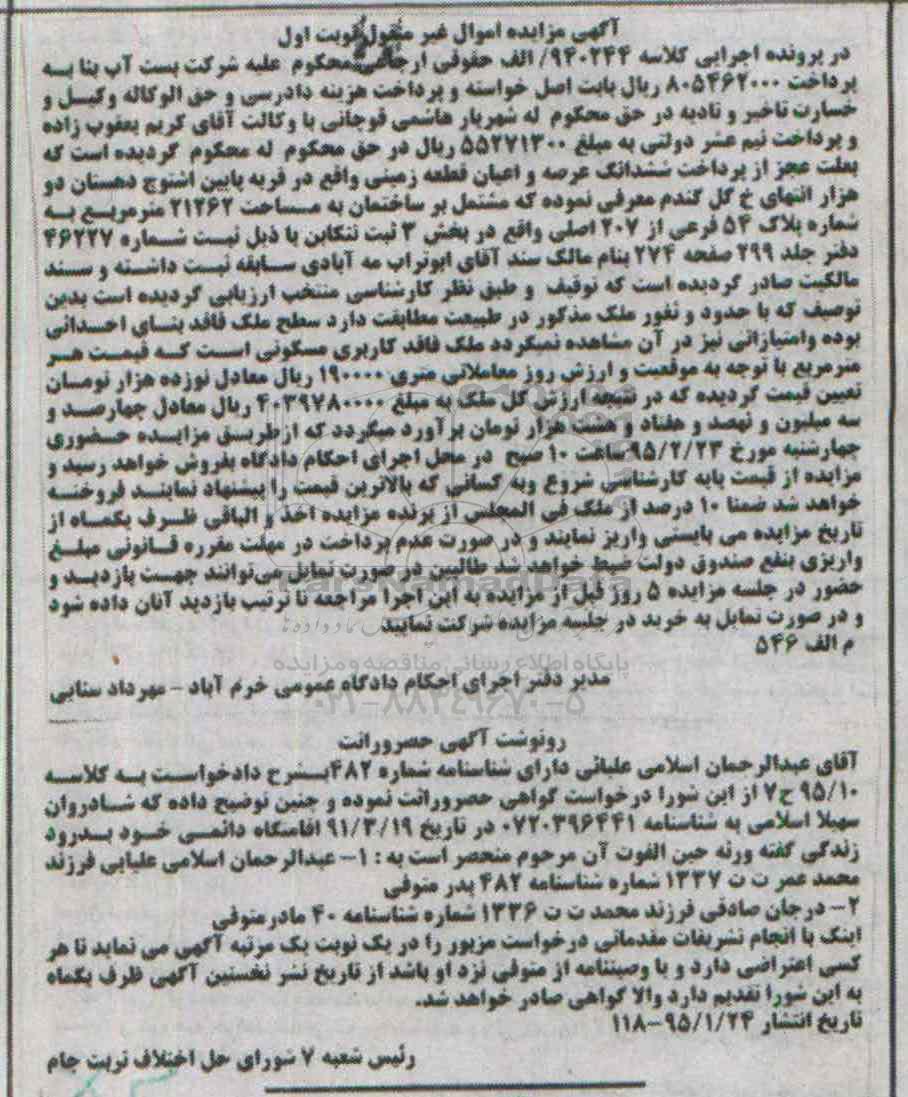 آگهی مزایده اموال غیر منقول نوبت اول
در پرونده اجرایی کلاسه ۹۴۰۲۴۴/ الف حقوقی ارجاعی محکوم علیه شرکت بست آب بنا به
پرداخت ۸۰۵۴۶۲۰۰۰ ریال بابت اصل خواسته و پرداخت هزینه دادرسی و حق الوکاله وکیل و
خسارت تاخیر و تادیه در حق محکوم له شهریار هاشمی قوچانی با وکالت آقای کریم یعقوب زاده
و پرداخت نیم عشر دولتی به مبلغ ۵۵۲۷۱۳۰۰ ریال در حق محکوم له محکوم گردیده است که
بعلت عجز از پرداخت ششدانگ عرصه و اعیان قطعه زمینی واقع در قریه پایین اشتوج دهستان دو
هزار انتهای خ گل گندم معرفی نموده که مشتمل بر ساختمان به مساحت ۲۱۲۶۲ مترمربع به
شماره پلاک ۵۴ فرعی از ۲۰۷ اصلی واقع در بخش ۳ ثبت تنکابن با ذیل ثبت شماره ۴۶۲۲۷
دفتر جلد ۲۹۹ صفحه ۲۷۴ بنام مالک سند آقای ابوتراب مه آبادی سابقه ثبت داشته و سند
مالکیت صادر گردیده است که توقیف و طبق نظر کارشناسی منتخب ارزیابی گردیده است بدین
توصیف که با حدود و ثغور ملک مذکور در طبیعت مطابقت دارد سطح ملک فاقد بنای احداثی
بوده وامتیازاتی نیز در آن مشاهده نمیگردد ملک فاقد کاربری مسکونی است که قیمت هر
مترمربع با توجه به موقعیت و ارزش روز معاملاتی متری ۱۹۰۰۰۰ ریال معادل نوزده هزار تومان
تعیین قیمت گردیده که در نتیجه ارزش کل ملک به مبلغ ۴۰۳۹۷۸۰۰۰۰ ریال معادل چهارصد و
سه میلیون و نهصد و هفتاد و هشت هزار تومان برآورد میگردد که ازطریق مزایده حضوری
چهارشنبه مورخ ۹۵/۲/۲۳ ساعت ۱۰ صبح در محل اجرای احکام دادگاه بفروش خواهد رسید و
مزایده از قیمت پایه کارشناسی شروع وبه کسانی که بالاترین قیمت را پیشنهاد نمایند فروخته
خواهد شد ضمنا ۱۰ درصد از ملک فی المجلس از برنده مزایده اخذ و الباقی ظرف یکماه از
تاریخ مزایده می بایستی واریز نمایند و در صورت عدم پرداخت در مهلت مقرره قانونی مبلغ
واریزی بنفع صندوق دولت ضبط خواهد شد طالبین در صورت تمایل می‌توانند جهت بازدید و
حضور در جلسه مزایده ۵ روز قبل از مزایده به این اجرا مراجعه تا ترتیب بازدید آنان داده شود
و در صورت تمایل به خرید در جلسه مزایده شرکت نمایید
م الف ۵۴۶
پایگاه اطلاع رسانی مناقصه و مزایده
مدیر دفتر اجرای احکام دادگاه عمومی خرم آباد – مهرداد سنایی
۰۲۱-۸۸۳۴۹۶۷۰-۵
رونوشت آگهی حصروراثت
آقای عبدالرحمان اسلامی علیائی دارای شناسنامه شماره ۴۸۲ بشرح دادخواست به کلاسه
۹۵/۱۰ ح۷ از این شورا درخواست گواهی حصروراثت نموده و چنین توضیح داده که شادروان
سهیلا اسلامی به شناسنامه ۰۷۲۰۳۹۶۴۴۱ در تاریخ ۹۱/۳/۱۹ اقامتگاه دائمی خود بدرود
زندگی گفته ورثه حین الفوت آن مرحوم منحصر است به : ۱- عبدالرحمان اسلامی علیایی فرزند
محمد عمر ت ت ۱۳۳۷ شماره شناسنامه ۴۸۲ پدر متوفی
۲- درجان صادقی فرزند محمد ت ت ۱۳۳۶ شماره شناسنامه ۴۰ مادرمتوفی
اینک با انجام تشریفات مقدماتی درخواست مزبور را در یک نوبت یک مرتبه آگهی می نماید تا هر
کسی اعتراضی دارد و یا وصیتنامه از متوفی نزد او باشد از تاریخ نشر نخستین آگهی ظرف یکماه
به این شورا تقدیم دارد والا گواهی صادر خواهد شد.
تاریخ انتشار ۹۵/۱/۲۴-۱۱۸
رئیس شعبه ۷ شورای حل اختلاف تربت جام